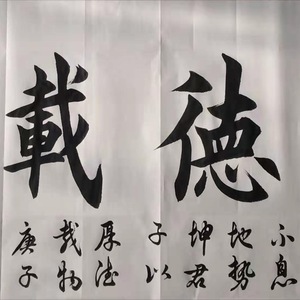 德載
不息
地勢
坤君
子以
厚德
载物
庚子